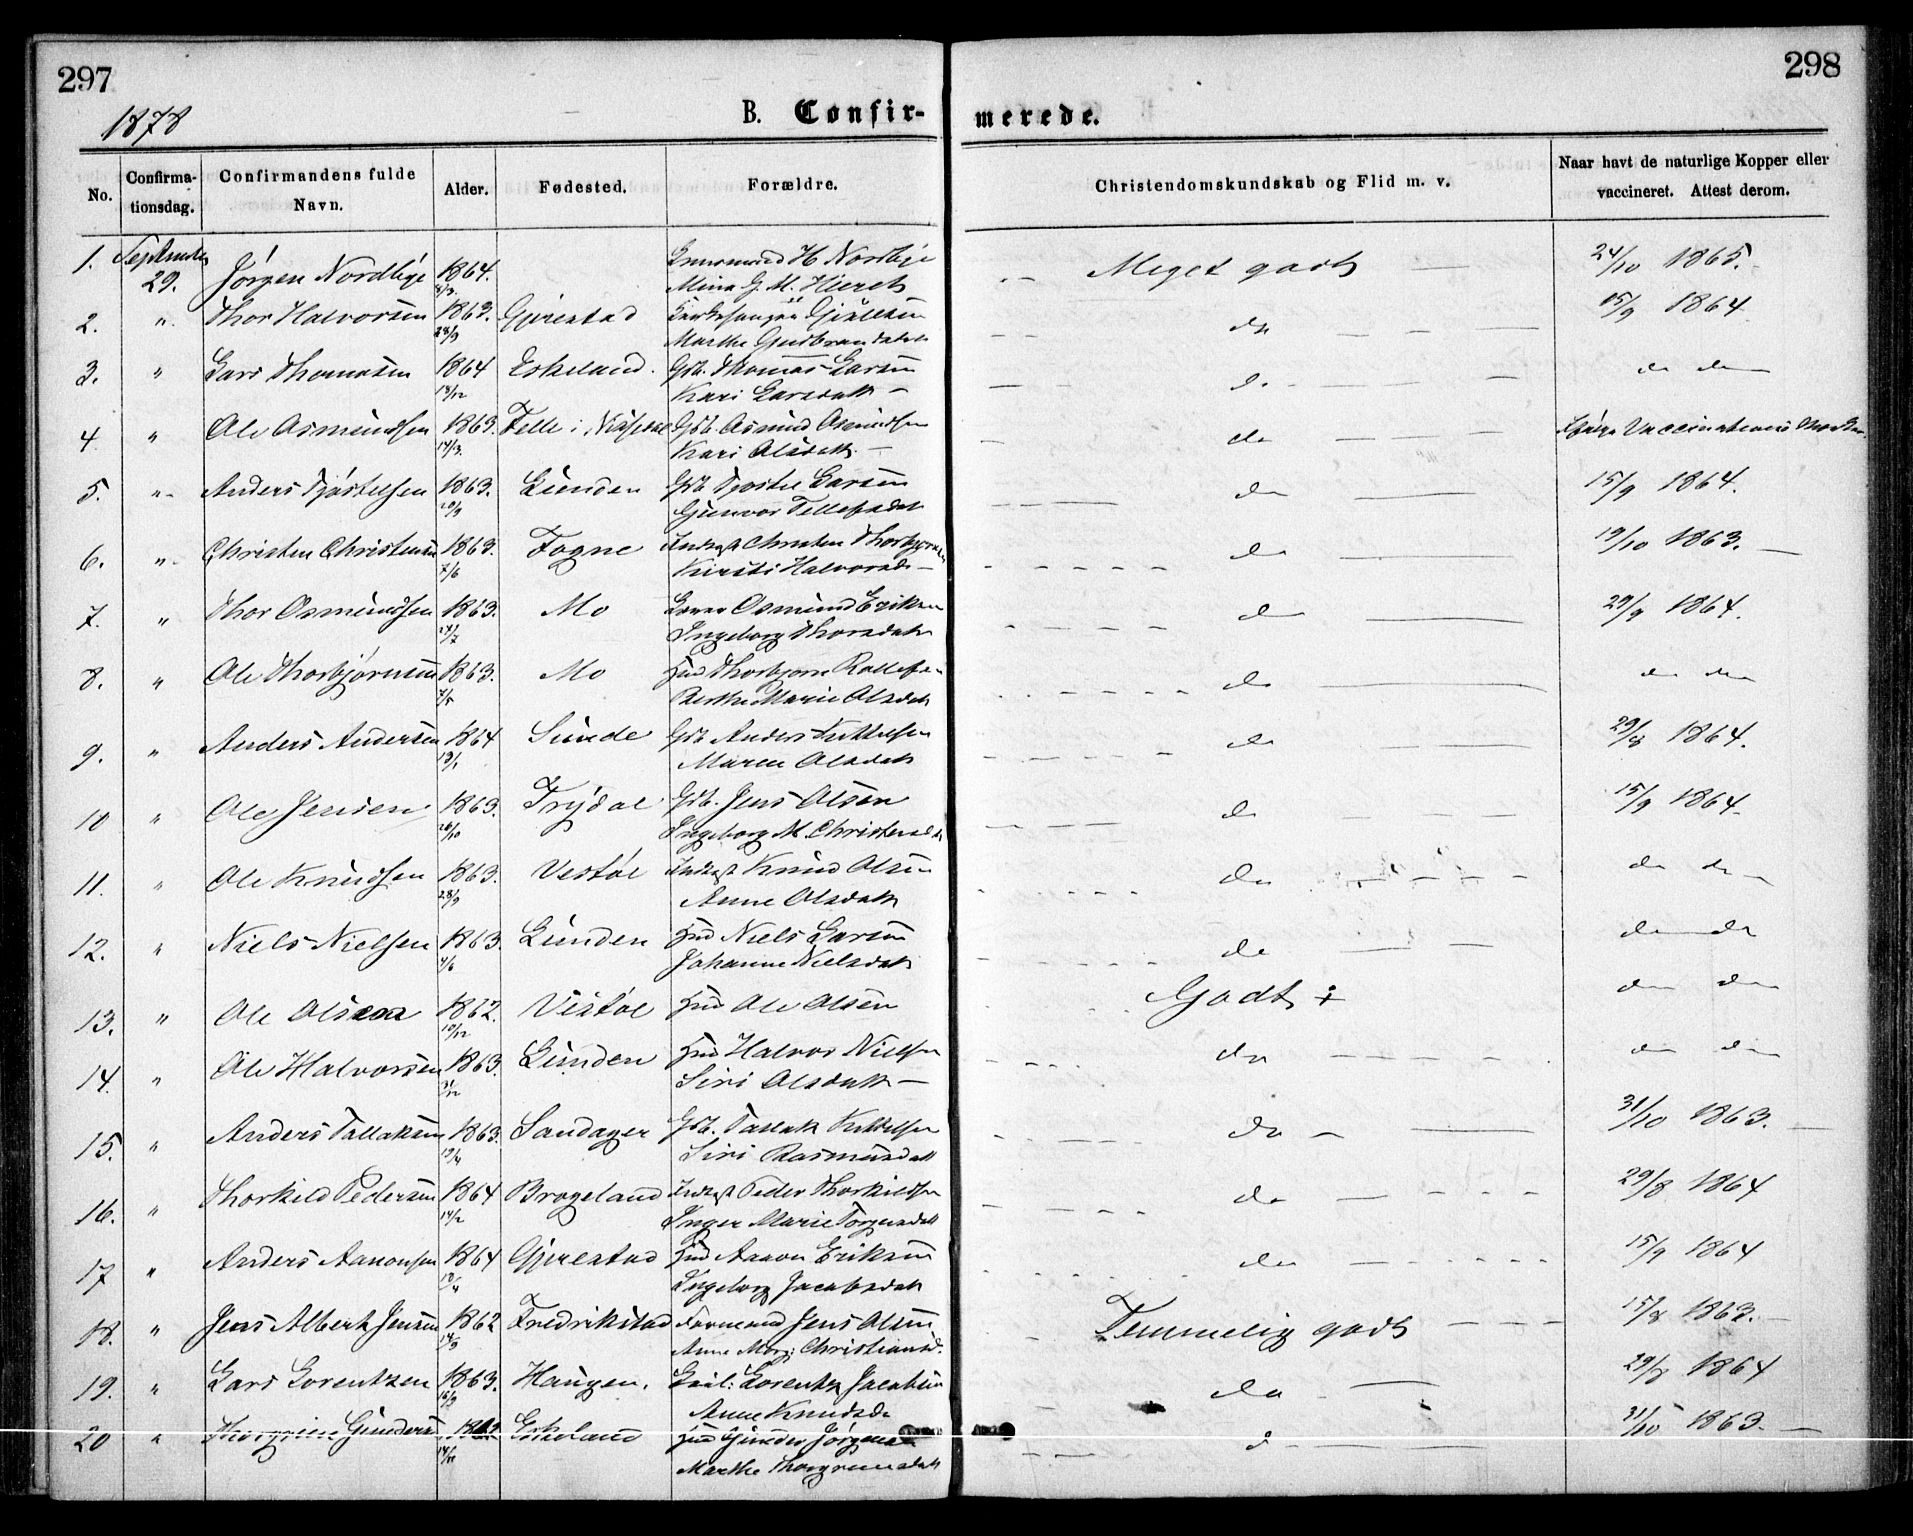 297
298
1878
B. Confir-
merede.
No.
Confirma-
tionsdag.
Confirmandens fulde
Navn.
Alder.
Fødested.
Forældre.
Christendomskundskab og Flid m. v.
Naar havt de naturlige Kopper eller
vaccineret. Attest derom.
1. September 29. Jørgen Nordbye 1864. H Nordbye Mina G. M. Meget godt 24/10 1865.
2. " Thor Halvorsen 1863. 28/9 Gjerestad Kirkesanger Marthe Gudbrandsdatt do 15/9 1864
3. " Lars Thomasen 1864 Eskeland. Gdb. Thomas Larsen Kari Larsdatt – do do do
4. " Ole Asmundsen 1863. 14/3. Felle i Nissedal Gdb. Asmund Asmundsen Kari Olsdatt. – do
5. " Anders Tjøstelsen 1863. 20/9 Lunden Gdb Tjøstel Larsen Gunvor Tellefsdat do 15/9 1864.
6. " Christen Christensen 1863. 7/6 Fogne Indst Christen Thorbjørnsen Kirsti Halvorsd – do 19/10 1863. –
7. " Thor Osmundsen 1863. Mo Osmund Eriksen Ingeborg Thorsdatt do 29/9 1864.
8. " Ole Thorbjørnsen 1863. Mo Hmd Thorbjørn Rollefsen Berthe Marie Olsdatt do do do
9. " Anders Andersen 1864 Sunde Gdb Anders Kittelsen Maren Olsdatt do 29/8 1864.
10 " Ole Jensen 1863. 26/10 Trydal Gdb. Jens Olsen Ingeborg M. Christensd do 15/9 1864.
11. " Ole Knudsen 1863. 28/9 Vestøl Indst Knud Olsen Anne Olsdatt do do do
12. " Niels Nielsen 1863. 4/6 Lunden Hmd Niels Larsen Johanne Nielsdatt do do do
13. " Ole Olsen 1862. 10/12 Vestøl Hmd Ole Olsen Godt ÷ do do
14. " Ole Halvorsen 1863. 31/12 Lunden Hmd Halvor Nielsen Siri Olsdatt – do do do
15. " Anders Tallaksen 1863. 19/4 Sandager Gdb. Tallak Kittelsen Siri Rasmusdatt do – 31/10 1863.
16. " Thorkild Pedersen 1864 14/2 Brogeland Indst Peder Thorkildsen Inger Marie Torgersdatt do 29/8 1864
17 " Anders Aanonsen 1864 Gjerestad Hmd Aanon Eriksen Ingeborg Jacobsdatt do 15/9 1864
18. " Jens Albert Jensen 1862 14/9 Fredrikstad Formand Jens Olsen Anne Marg: Christiansd. Temmelig godt 15/8 1863.
19. " Lars Lorentzen 1863. Haugen. Lorentz Jacobsen Anne Knudsd do 29/8 1864
20 " Thorgrim Gundersen Eskeland Hmd Gunder Jørgensen Marthe Thorgrimsdatt d 31/10 1863. –